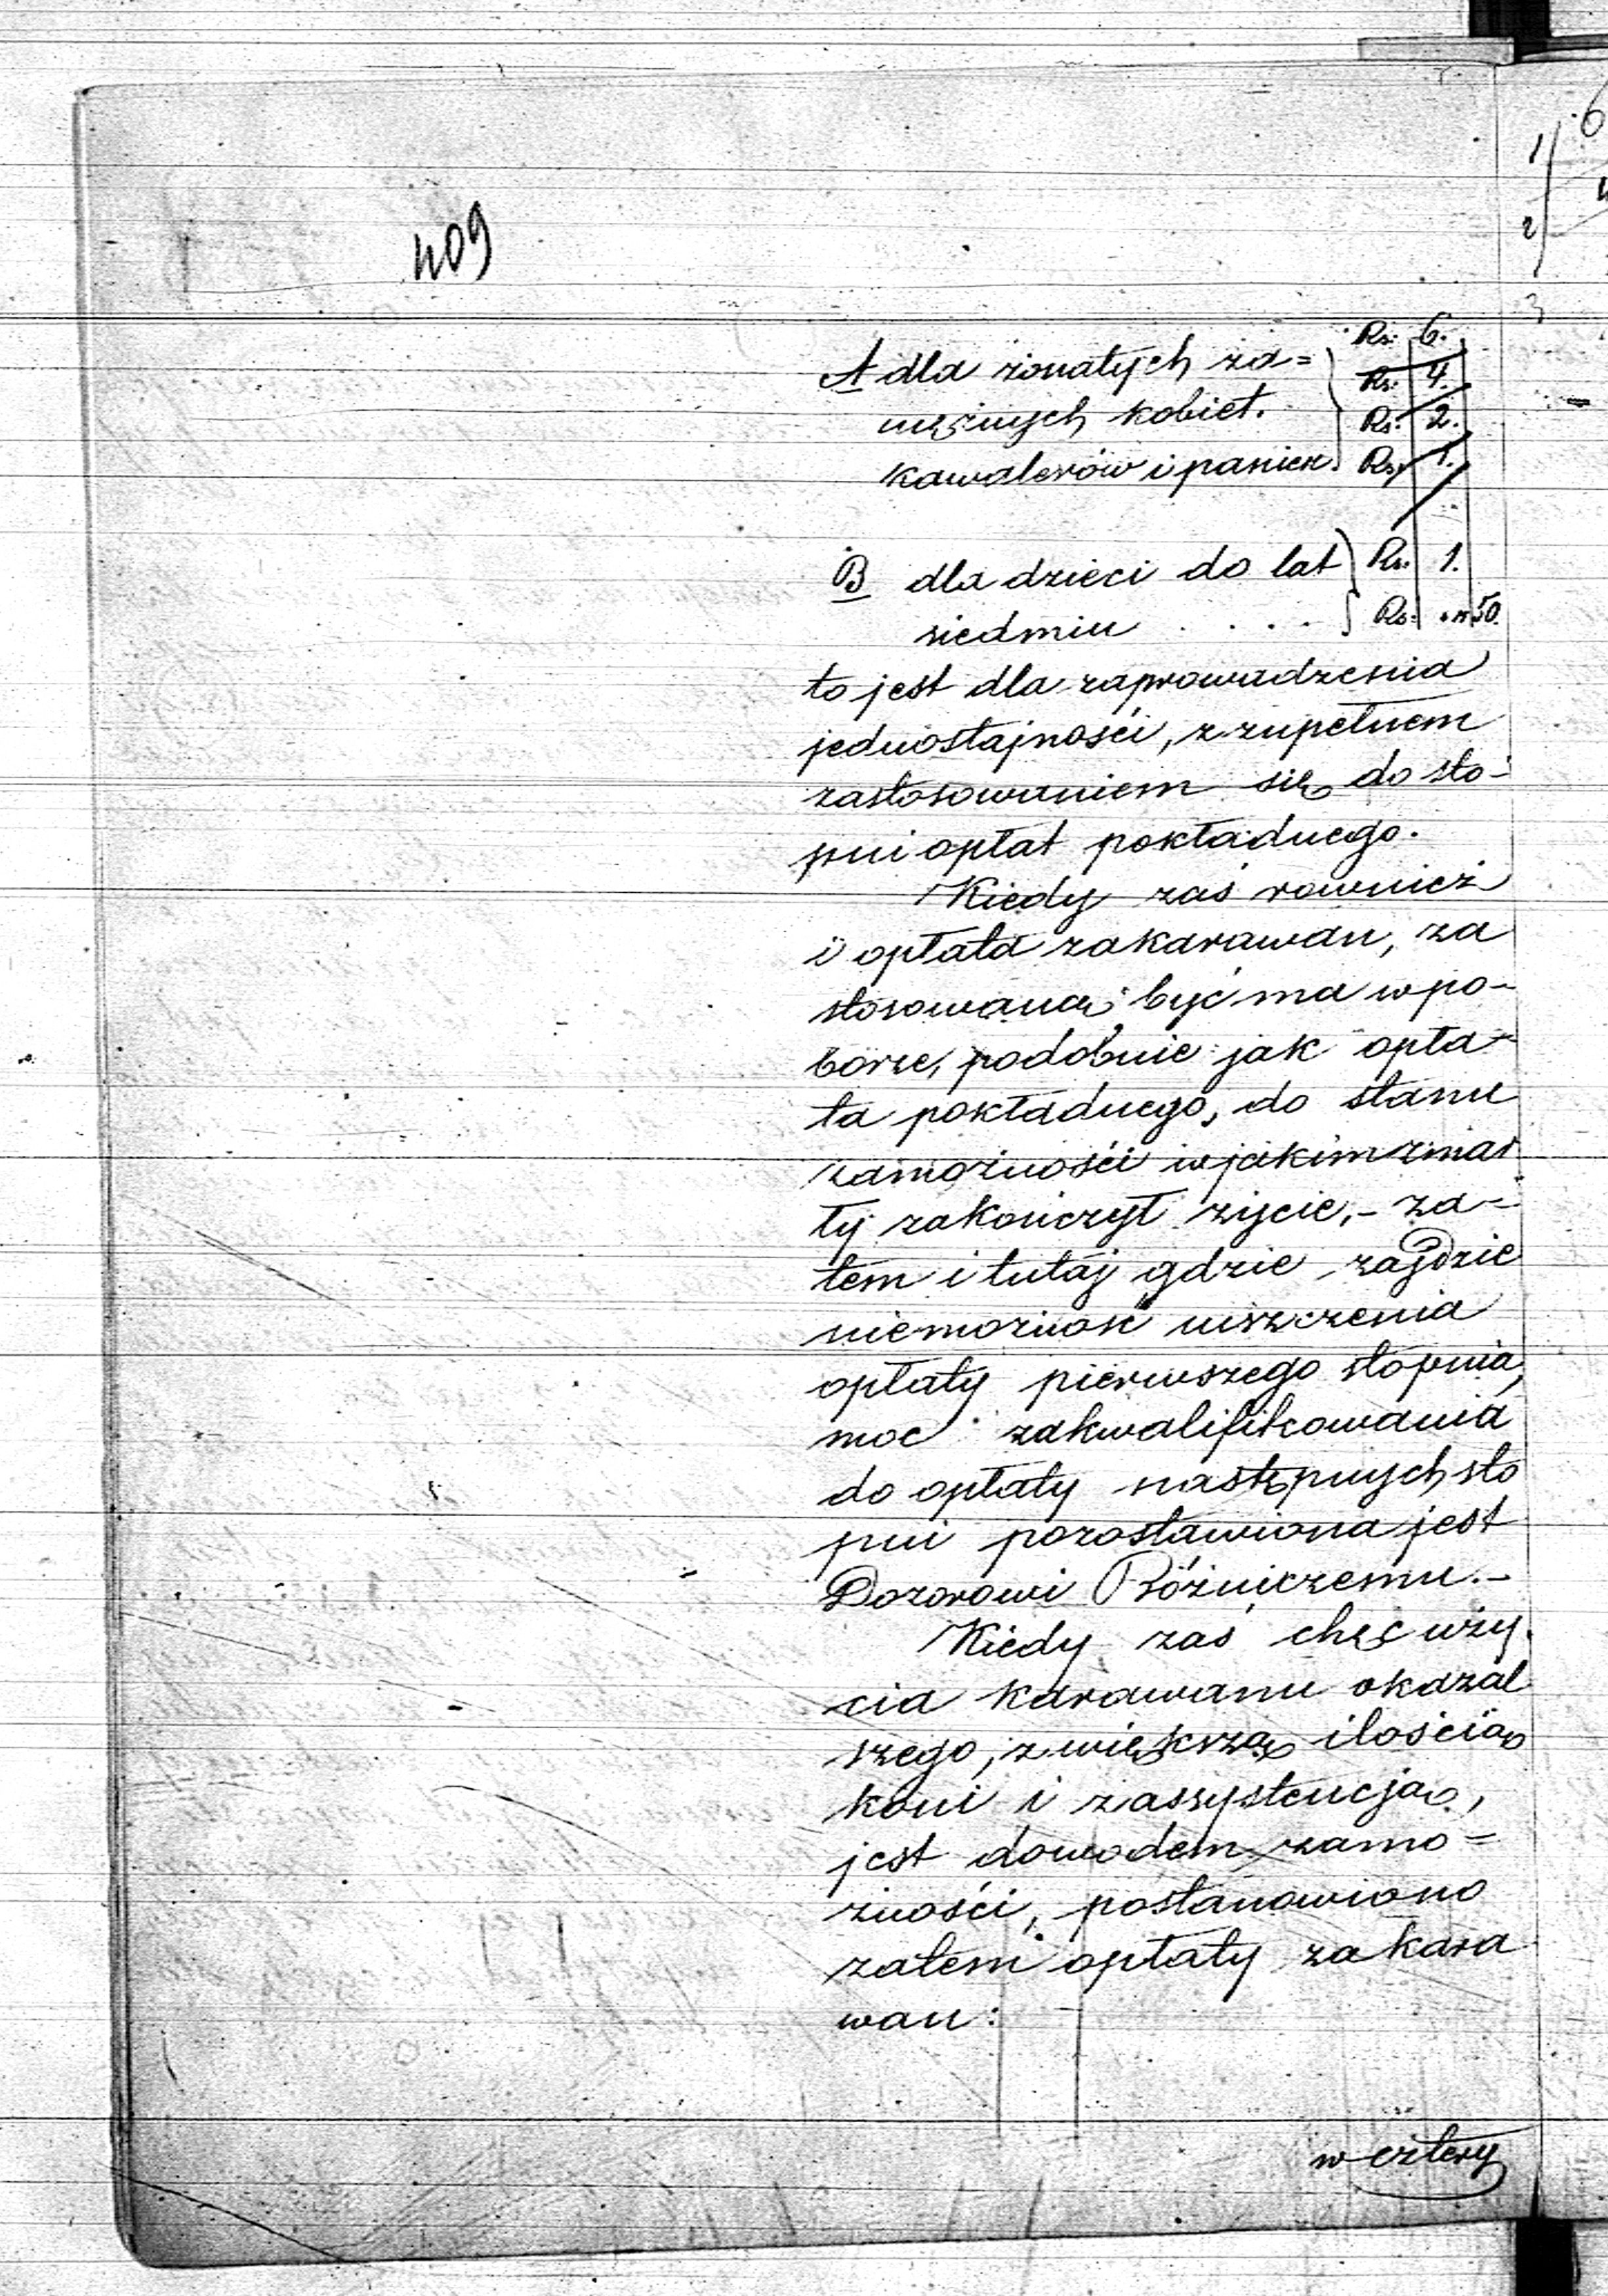 409
A dla żonatych za= Rs: 6.
Rs: 4.
mężnych kobiet. Rs: 2.
kawalerów i panien Rs: 1.
B dla dzieci do lat Rs: 1.
siedmiu . . . . Rs: „ 50.
to jest dla zaprowadzenia
jednostajności, z zupełnem
zastosowaniem się do sto-
pni opłat pokładnego.
Kiedy zaś rownież
i opłata za karawan, za
stosowana być ma w po-
borze, podobnie jak opła-
ta pokładnego, do stanu
zamożności w jakim zmar
ły zakończył życie,- za-
tem i tutaj gdzie zajdzie
niemożność uiszczenia
opłaty pierwszego stopnia,
moc zakwalifikowania
do opłaty następnych sto
pni pozostawiona jest
Dozorowi Bóżniczemu.-
Kiedy zaś chęć uży.
cia karawanu okazal
szego, z większą ilością
koni i z assystencją,
jest dowodem zamo=
żności, postanowiono
zatem opłaty za kara
wan:
w cztery
1
2
3
6